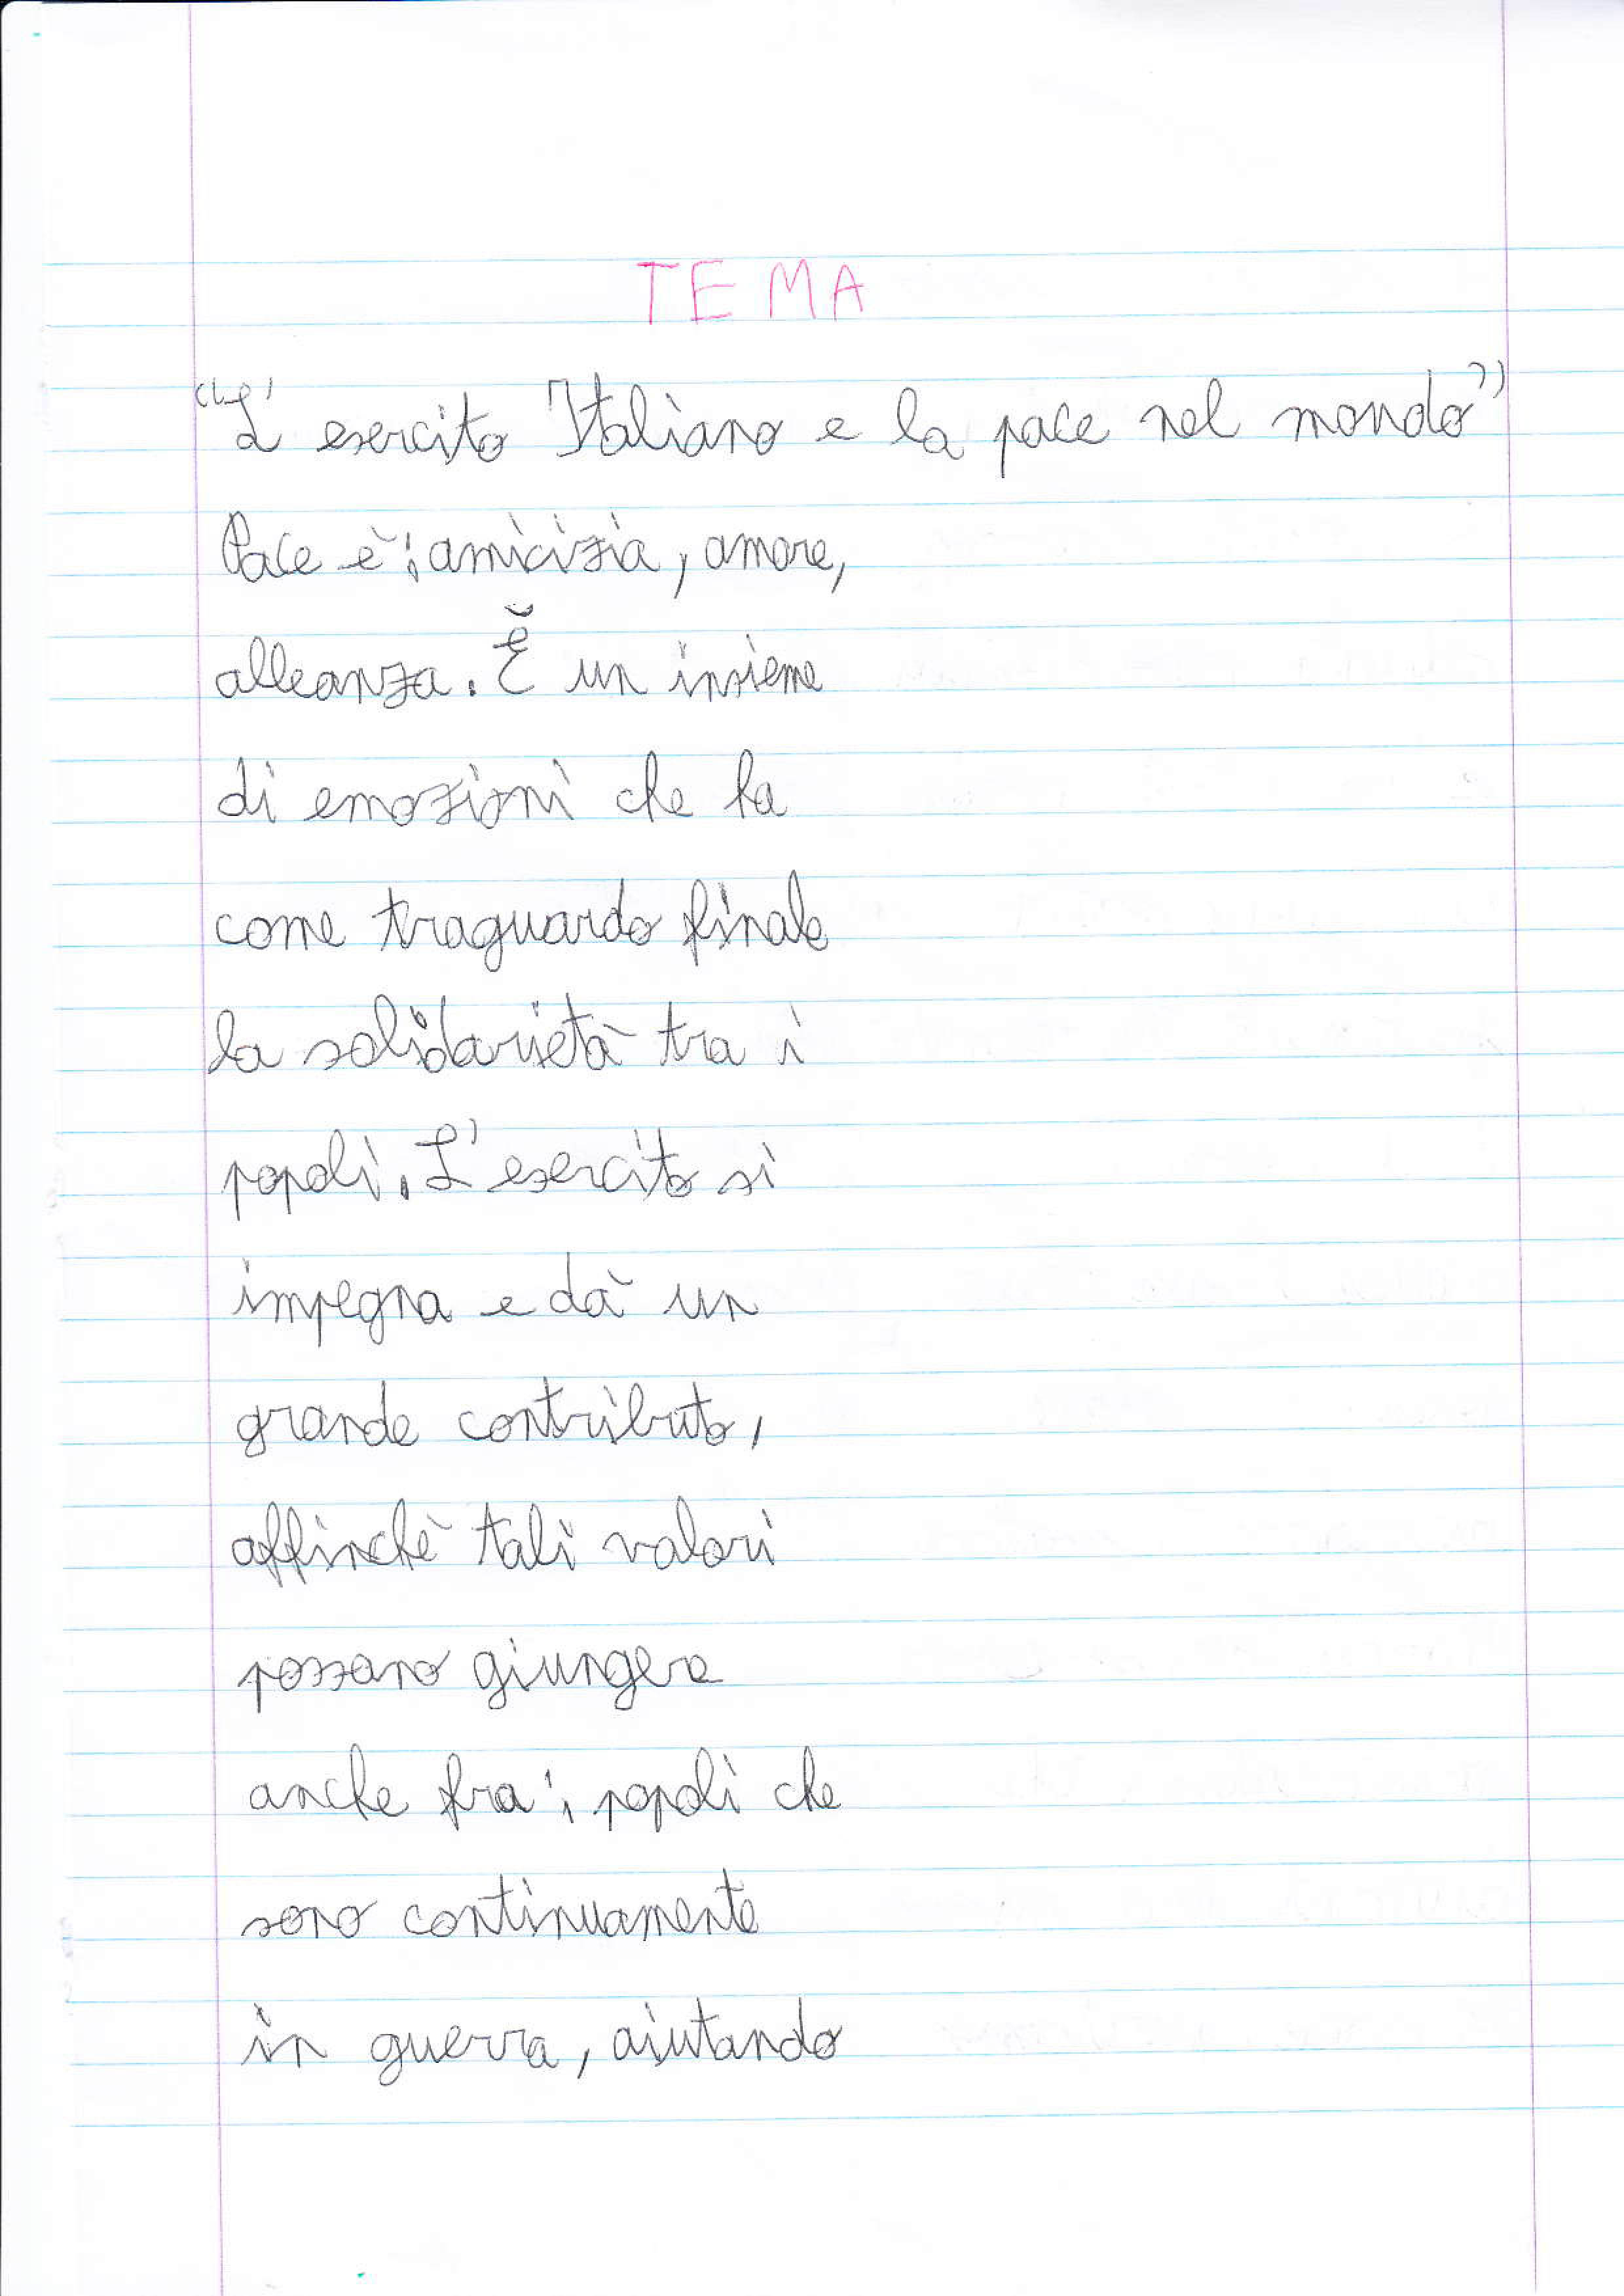 TEMA
"L'esercito Italiano e la pace nel mondo"
Pace è: amicizia, amore,
alleanza. È un insieme
di emozioni che ha
come traguardo finale
la solidarietà tra i
popoli. L'esercito si
impegna e dà un
grande contributo,
affinchè tali valori
possano giungere
anche fra i popoli che
sono continuamente
in guerra, aiutando